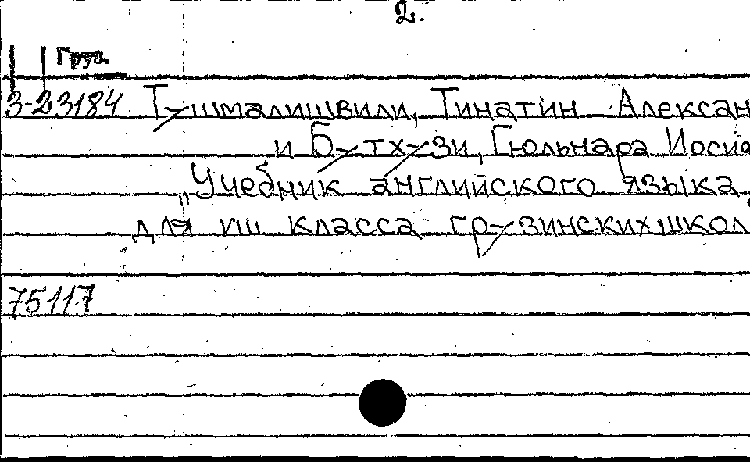 2.
Груз.
3-23184 Тушмалишвили, Тинатин Алексан
и Бутхузи, Гюльнара Иосиф
„Учебник английского языка,
для VIII класса грузинских школ
75117